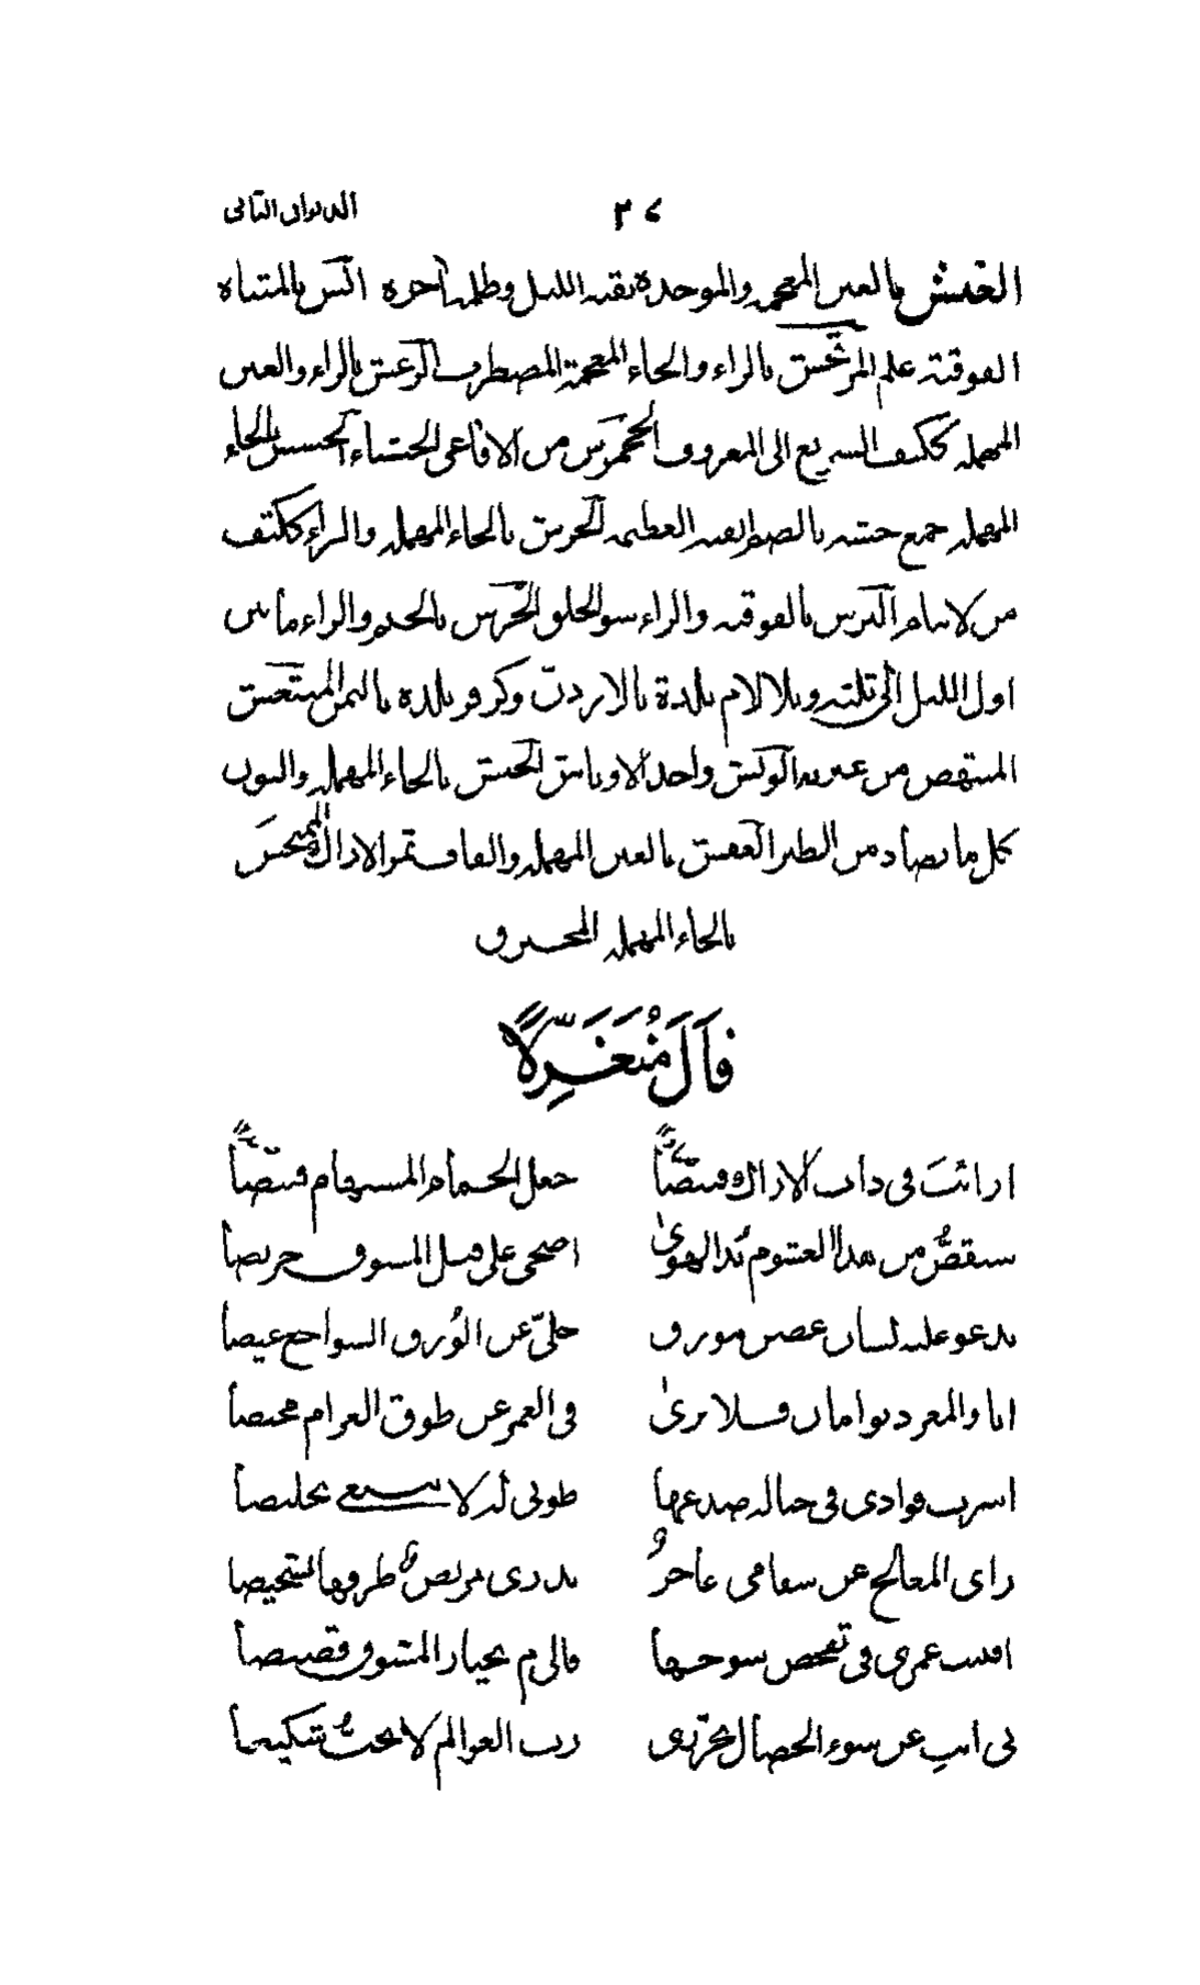 ٣٧ الديوان الثاني
الغبش بالغين المعجمه والموحدة بقيه الليل وظلمه آخره التش بالمثناة
الفوقية علم المرتخش بالراء والخاء المعجمة المضطرب الرعش بالراء والعين
المهمله ككتف السريع الى المعروف الجحمرش من الافاعى الخشناء الحشش بالحاء
المهمله جمع بالضم العظيمه الحرش بالحاء المهمله والراء ككتف
من لاينام الترش بالفوقيه والراء سوالخلق الجرش بالجيم والراء مابين
اول الليل الى ثلثه وبلا لام بلدة بالاردن وكزفر بلده باليمن المنتعش
المنتهض من عثرته الوبش واحد الاوباش الحنش بالحاء المهمله والنون
كل ما يصاد من الطير العفش بالعين المهمله والفاء ثمر الاراك الممتحش
بالحاء المهمله المحترق
قَالَ مُتَغَزِّلًا
ارائتَ فى ذات الاراك قنّصًا جعل الحمام المستهام قنيصًا
سيقصُّ من هذا الغشوم يُد الهوىٰ اضحى على قتل المشوق حريصا
يدعو عليه لسان غصن مورق خلىّ عن الوُرق السواجع عيصا
انا والمغرد توامان فلا يرىٰ فى العمر عن طوق الغرام محيصا
اسرت فوادى فى حباله صدغها طوبى له لا يبتغى تخليصا
راى المعالج عن سقامى عاجزٌ يدرى مريضُ طرفها تشخيصا
افنيت عمرى فى تفحص سوحها مالى م يختار المشوق قصيصا
بى انتِ عن سوء الخصال تحرّزى رب العوالم لا يحبُّ نكيصا